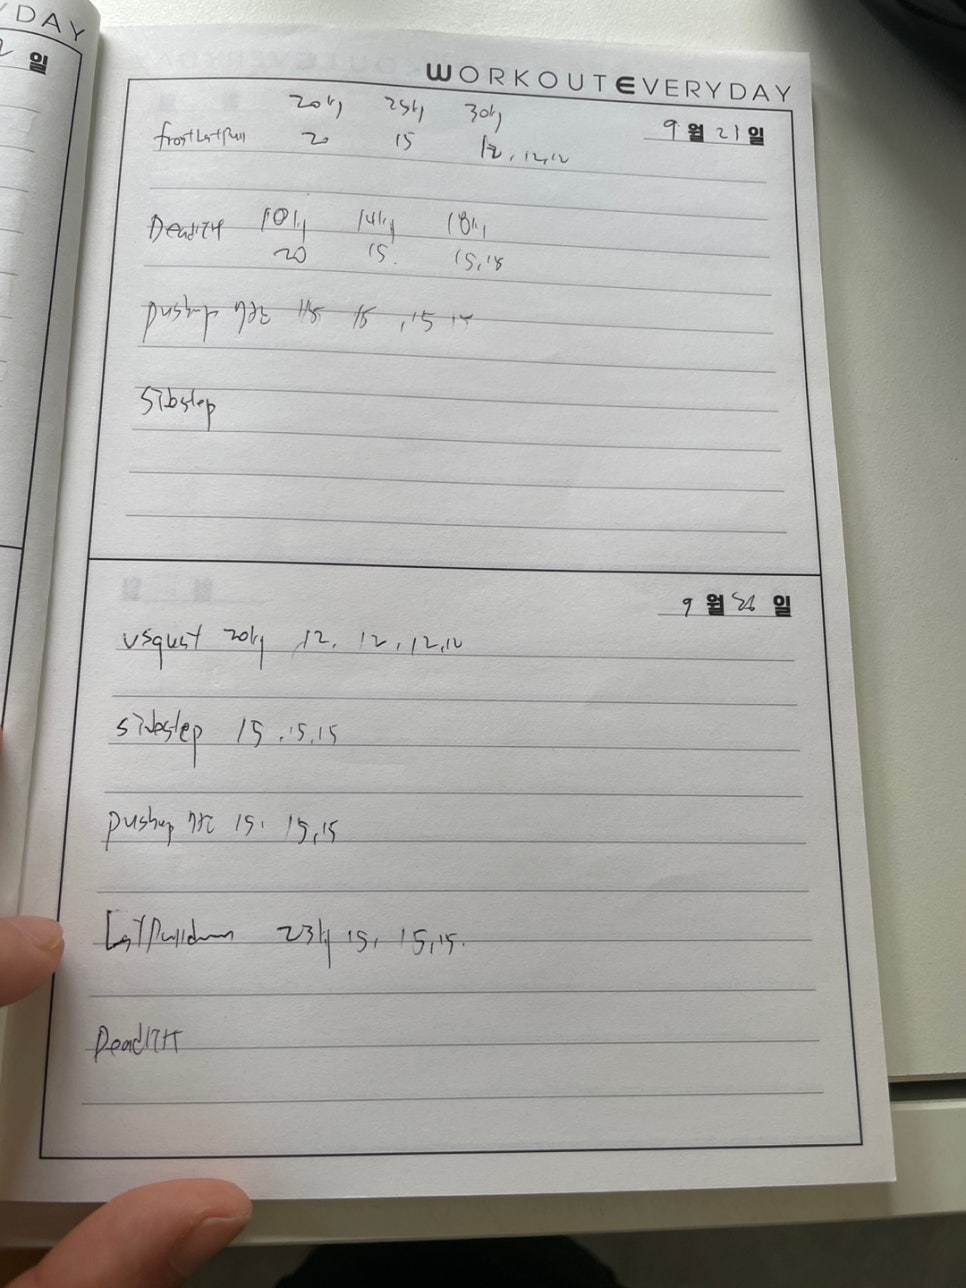 YDAY
일
WORKOUTEVERYDAY
9월 21일
20kg 25kg 30kg
frontLatpull 20 15 12, 12, 12
Dead 10kg 14kg 18kg
20 15. 15, 15
pushup 15 15, 15 15
Sidestep
9월 26일
vsquat 20kg 12, 12, 12, 12
sidestep 15, 15, 15
pushup 15, 15, 15
Latpulldown 23kg 15, 15, 15.
Dead